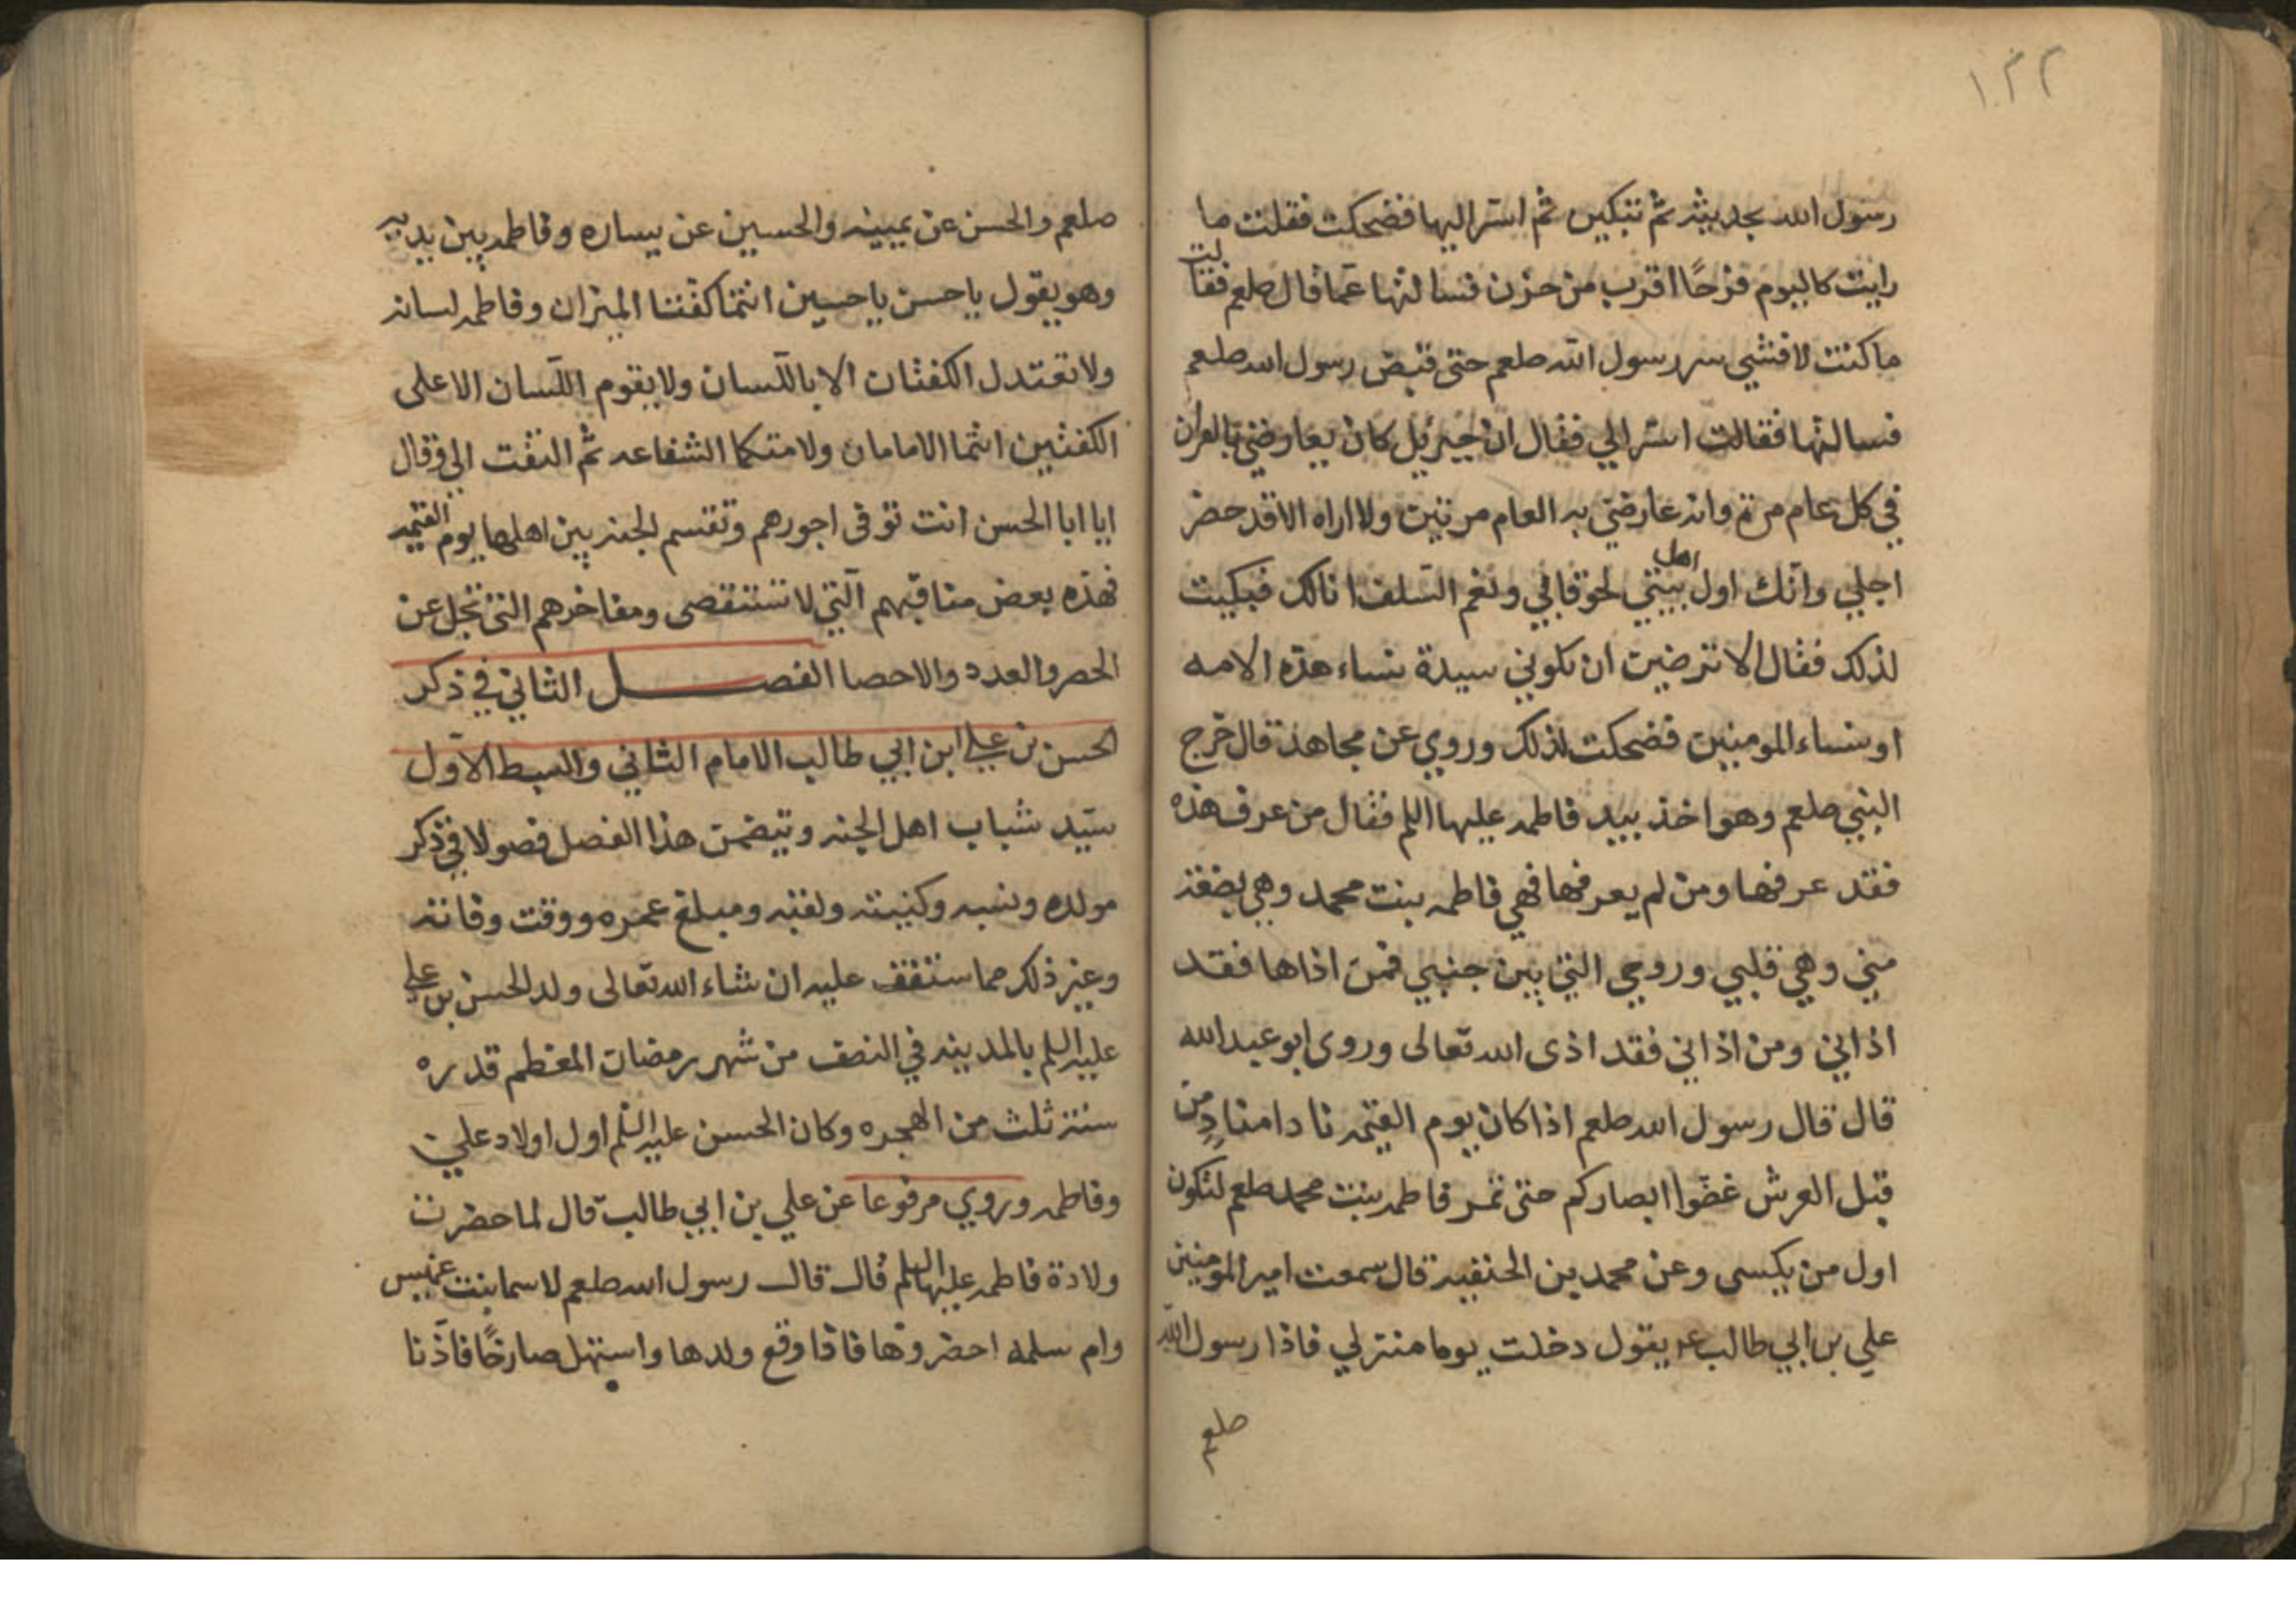 ١٢٢
رسول الله بحديثه ثم تبكين ثم اسر اليها فضحكت فقلت ما
رايت كاليوم فرحًا اقرب من حزن فسالتها عما قال صلعم فقالت
ما كنت لافشي سر رسول الله صلعم حتى قبض رسول الله صلعم
فسالتها فقالت اسر الي فقال ان جبرئيل كان يعارضني بالقران
في كل عام مرة وانه عارضني به العام مرتين ولا اراه الا قد حضر
اجلي وانك اول اهل بيتي لحوقا بي ونعم السلف انا لك فبكيت
لذلك فقال الا ترضين ان تكوني سيدة نساء هذه الامه
او نساء المومنين فضحكت لذلك وروي عن مجاهد قال خرج
النبي صلعم وهو اخذ بيد فاطمه عليها السلم فقال من عرف هذه
فقد عرفها ومن لم يعرفها فهي فاطمه بنت محمد وهي بضعة
مني وهي قلبي وروحي التي بين جنبي فمن اذاها فقد
اذاني ومن اذاني فقد اذى الله تعالى وروى ابو عبد الله
قال قال رسول الله صلعم اذا كان يوم القيمه نادا مناد من
قبل العرش غضوا ابصاركم حتى تمر فاطمه بنت محمد صلعم لتكون
اول من يكسى وعن محمد بن الحنفيه قال سمعت امير المومنين
علي بن ابي طالب عم يقول دخلت يوما منزلي فاذا رسول الله
صلعم
صلعم والحسن عن يمينه والحسين عن يساره وفاطمه بين يديه
وهو يقول يا حسن يا حسين انتما كفتا الميزان وفاطمه لسانه
ولا تعتدل الكفتان الا باللسان ولا يقوم اللسان الا على
الكفتين انتما الامامان ولامتكما الشفاعه ثم التفت الي وقال
ايا ابا الحسن انت توفى اجورهم وتقسم الجنه بين اهلها يوم القيمه
فهذه بعض مناقبهم التي لا تستقصى ومفاخرهم التي تجل عن
الحصر والعدد والاحصا الفصل الثاني في ذكر
الحسن بن علي ابن ابي طالب الامام الثاني والسبط الاول
سيد شباب اهل الجنه ويتضمن هذا الفصل فصولا في ذكر
مولده ونسبه وكنيته ولقبه ومبلغ عمره ووقت وفاته
وغير ذلك مما ستقف عليه ان شاء الله تعالى ولد الحسن بن علي
عليه السلم بالمدينه في النصف من شهر رمضان المعظم قدره
سنة ثلث من الهجره وكان الحسن عليه السلم اول اولاد علي
وفاطمه وروي مرفوعا عن علي بن ابي طالب قال لما حضرت
ولادة فاطمه عليها السلم قال قال رسول الله صلعم لاسما بنت عميس
وام سلمه احضروها فاذا وقع ولدها واستهل صارخًا فاذنا